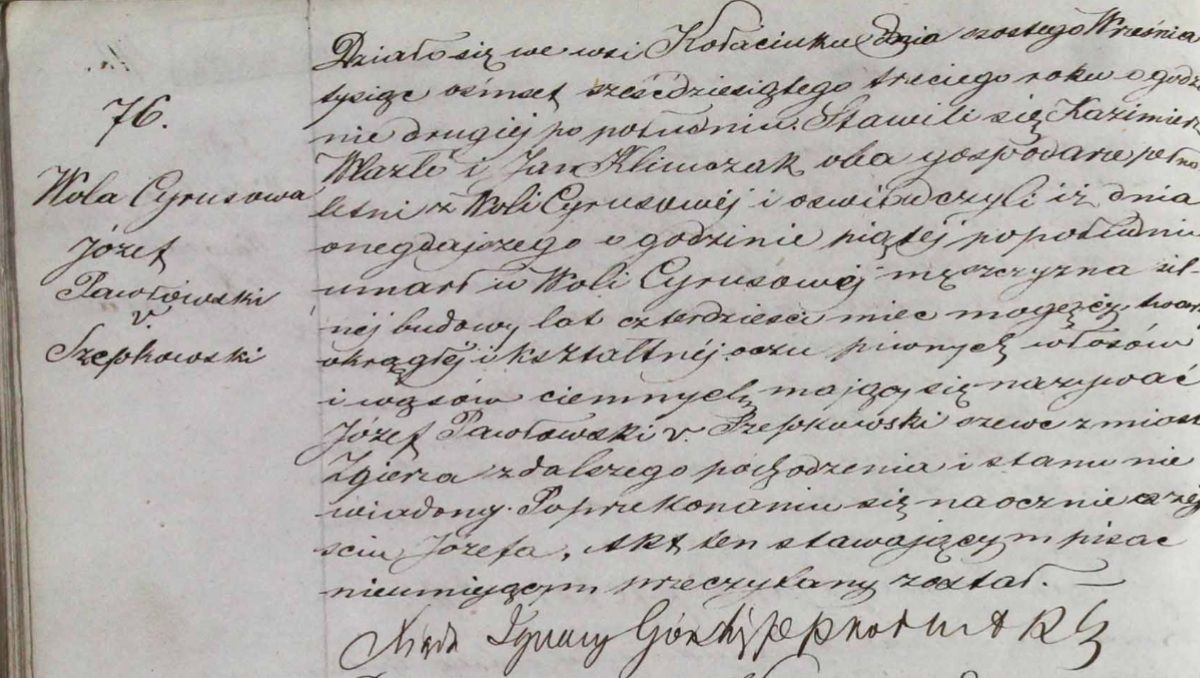 76.
Wola Cyrusowa
Józef
Pawłowski
v.
Szepkowski
Działo się we wsi Kołaciniu dnia szóstego Września
tysiąc ośmset sześćdziesiątego trzeciego roku o godzi
nie drugiej po południu. Stawili się Kazimierz
i Jan Klimczak oba gospodarze pełno
letni z Woli Cyrusowéj i oświadczyli iż dnia
onegdajszego o godzinie piątéj popołudniu
umarł w Woli Cyrusowéj męszczyzna sil
néj budowy lat czterdzieści miec mogący, twarzy
okrągłéj i kształtnéj oczu piwnych włosów
i wąsów ciemnych mający się nazywać
Józef Pawłowski v. Szepkowski szewc z miasta
Zgierza z dalszego pochodzenia i stanu nie
wiadomy. Po przekonaniu się naocznie o zej
ściu Józefa, Akt ten stawającym pisać
nieumiejącym przeczytany został. —
Ignacy